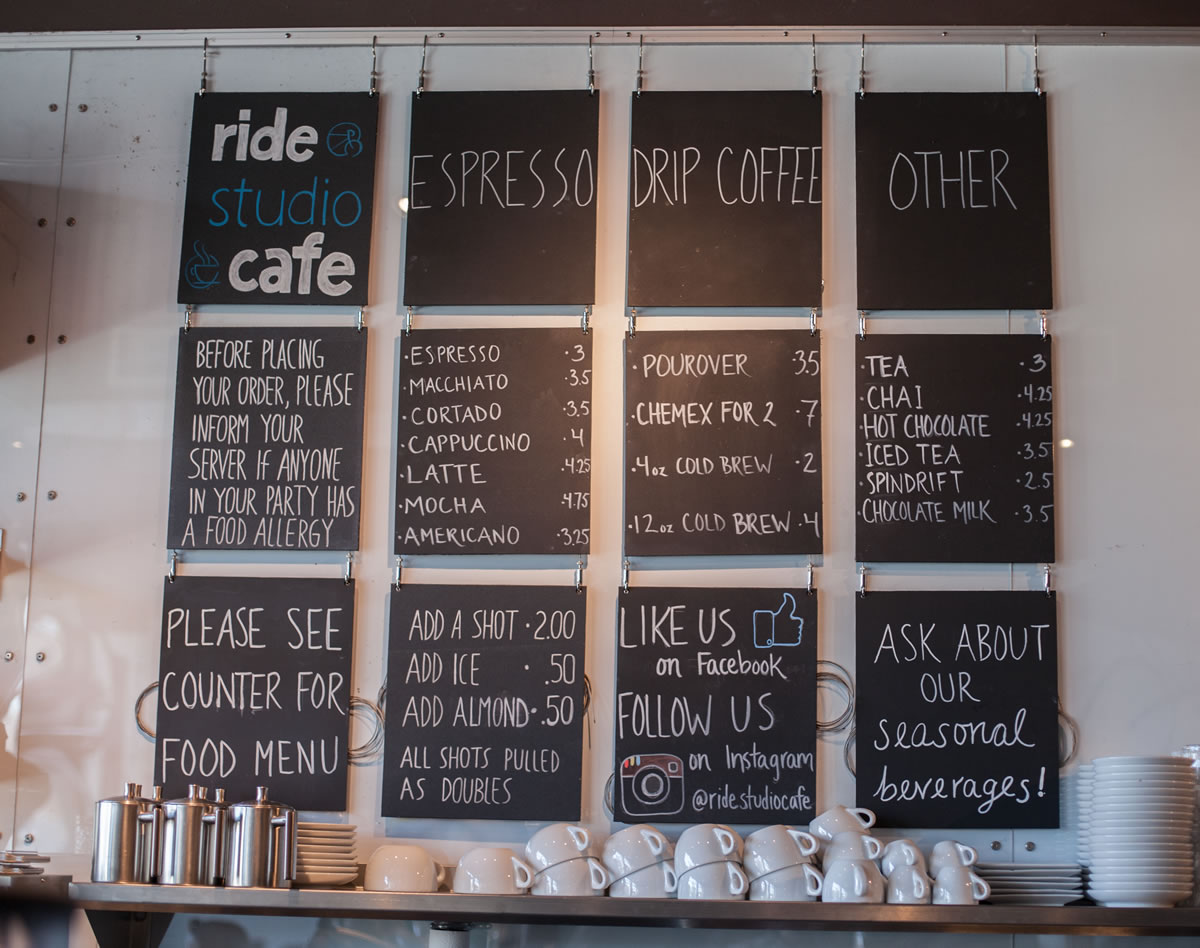 ride
studio
cafe
BEFORE PLACING
YOUR ORDER, PLEASE
INFORM YOUR
SERVER IF ANYONE
IN YOUR PARTY HAS
A FOOD ALLERGY
PLEASE SEE
COUNTER FOR
FOOD MENU
ESPRESSO
·ESPRESSO ·3
·MACCHIATO ·3.5
·CORTADO ·3.5
·CAPPUCCINO ·4
·LATTE ·4.25
·MOCHA ·4.75
·AMERICANO ·3.25
ADD A SHOT ·2.00
ADD ICE ·.50
ADD ALMOND ·.50
ALL SHOTS PULLED
AS DOUBLES
DRIP COFFEE
·POUROVER ·3.5
·CHEMEX FOR 2 ·7
·4oz COLD BREW ·2
·12oz COLD BREW ·4
LIKE US
on Facebook
FOLLOW US
on Instagram
@ridestudiocafe
OTHER
·TEA ·3
·CHAI ·4.25
·HOT CHOCOLATE ·4.25
·ICED TEA ·3.5
·SPINDRIFT ·2.5
·CHOCOLATE MILK ·3.5
ASK ABOUT
OUR
seasonal
beverages!